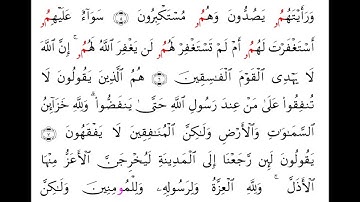 وَرَأَيْتَهُمُۥ يَصُدُّونَ وَهُمُۥ مُسْتَكْبِرُونَ ۝ سَوَآءٌ عَلَيْهِمُۥٓ
أَسْتَغْفَرْتَ لَهُمُۥٓ أَمْ لَمْ تَسْتَغْفِرْ لَهُمُۥ لَن يَغْفِرَ ٱللَّهُ لَهُمُۥٓ ۚ إِنَّ ٱللَّهَ
لَا يَهْدِى ٱلْقَوْمَ ٱلْفَٰسِقِينَ ۝ هُمُ ٱلَّذِينَ يَقُولُونَ لَا
تُنفِقُوا۟ عَلَىٰ مَنْ عِندَ رَسُولِ ٱللَّهِ حَتَّىٰ يَنفَضُّوا۟ ۗ وَلِلَّهِ خَزَآئِنُ
ٱلسَّمَٰوَٰتِ وَٱلْأَرْضِ وَلَٰكِنَّ ٱلْمُنَٰفِقِينَ لَا يَفْقَهُونَ ۝
يَقُولُونَ لَئِن رَّجَعْنَآ إِلَى ٱلْمَدِينَةِ لَيُخْرِجَنَّ ٱلْأَعَزُّ مِنْهَا
ٱلْأَذَلَّ ۚ وَلِلَّهِ ٱلْعِزَّةُ وَلِرَسُولِهِۦ وَلِلْمُومِنِينَ وَلَٰكِنَّ